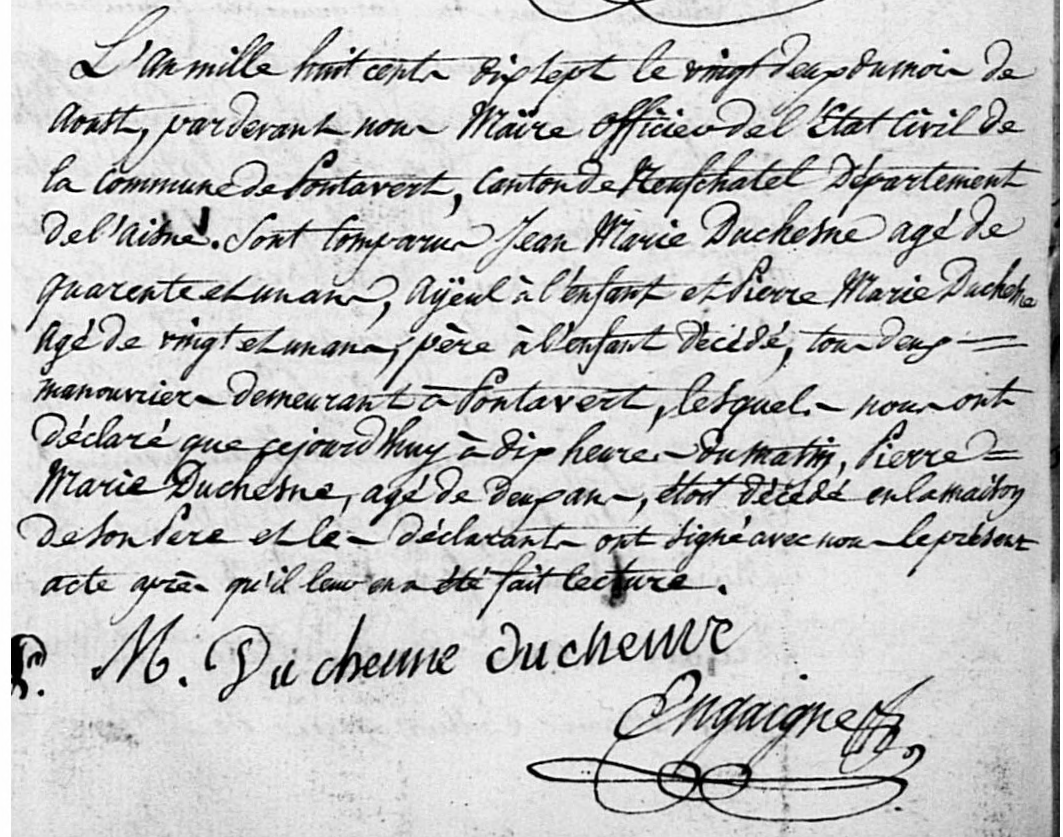 L'an mille huit cents dix sept le vingt deux du mois de
Aoust, pardevant nous Maire officier de l'Etat Civil de
la commune de Pontavert, Canton de Neufchatel Département
de l'aisne. Sont Comparus Jean Marie Duchesne agé de
quarente et un ans, Ayeul à l'enfant et Pierre Marie Duchesne
Agé de vingt et un ans, père à l'enfant décédé, tous deux =
manouvriers demeurant à Pontavert, lesquels nous ont
déclaré que cejourd'huy à dix heures du matin, Pierre =
Marie Duchesne, agé de deux ans, étoit décédé en la maison
de son Père et les déclarants ont signé avec nous le présent
acte après qu'il leur en a été fait lecture.
P. M. Duchenne duchenne
Engaigne